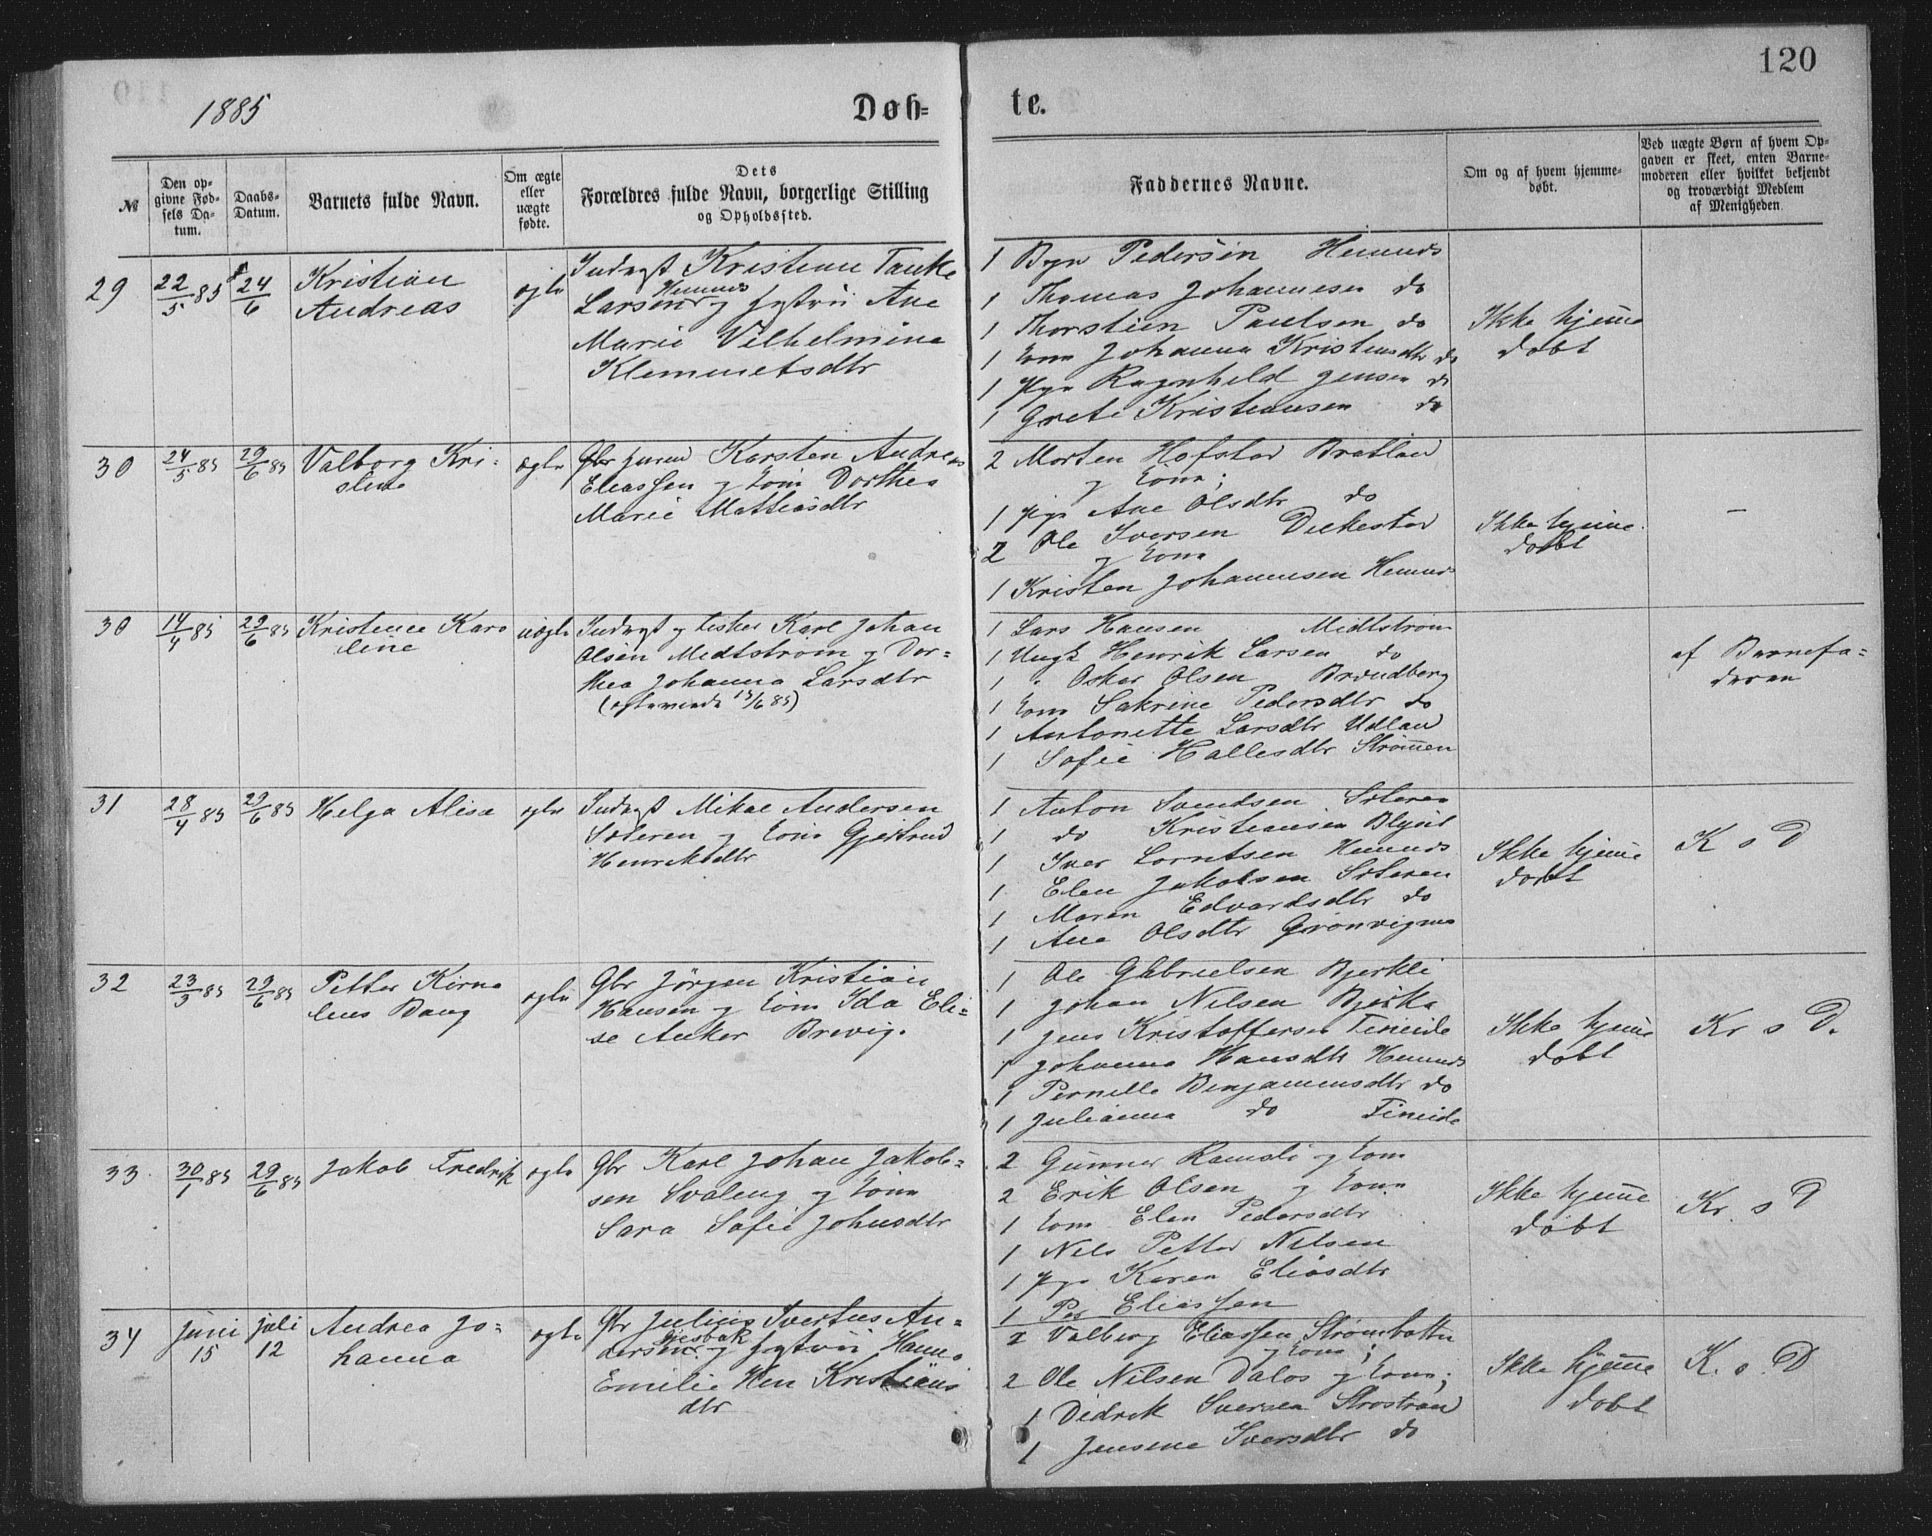 120
1885
Døb=
te.
№
Den op-
givne Fød-
sels Da-
tum.
Daabs-
Datum.
Barnets fulde Navn.
Om ægte
eller
uægte
fødte.
Dets
Forældres fulde Navn, borgerlige Stilling
og Opholdssted.
Faddernes Navne.
Om og af hvem hjemme-
døbt.
Ved uægte Børn af hvem Op-
gaven er skeet, enten Barne-
moderen eller hvilket bekjendt
og troværdigt Medlem
af Menigheden
29
22/5 85
24/6
Kristian
Andreas
ægte
Inderst Kristian Tanke
Hemnes
Larsen og hustru Ane
Marie Vilhelmina
Klemmetsdtr
1 Pedersen Hemnes
1 Thomas Johannesen do
1 Thorstein Paulsen do
1 Kone Johanna Kristensdtr do
1 Pige Ragnhild Jensen do
1 Grete Kristiansen do
Ikke hjeme
døbt
30
24/5 85
29/6 85
Valborg Kri-
stine
ægte
Gbr Karsten Andreas
Eliassen og Kone Dorthea
Marie Mattiasdtr
2 Morten Hofstad Bratland
og Kone;
1 Pige Ane Olsdtr do
2 Ole Iversen
og Kone
1 Kristen Johannesen Hemnes
Ikke hjeme
døbt
-
30
14/4 85
29/6 85
Kristine Karo
line
uægte
Inderst og Fisker Karl Johan
Olsen Midtstrøm og Dor-
thea Johanna Larsdtr
(ægteviede 15/6 85)
1 Lars Hansen Midtstrøm
1 Ungk Henrik Larsen do
1 " Oskar Olsen Brendberg
1 Kone Sakrine Pedersdtr do
1 Antonette Larsdtr Utland
1 Sofie Hallesdtr Strømmen
af Barnefa-
deren
31
28/4 85
29/6 85
Helga Alisa
ægte
Inderst Mikal Andersen
Sæteren og Kone Gjertrud
Henriksdtr
1 Anton Svendsen Sæteren
1 do Kristiansen
1 Iver Lorntsen Hemnes
1 Elen Jakobsen Sæteren
1 Maren Edvardsdtr do
1 Ane Olsdtr Grønvignes
Ikke hjeme
døbt
K o D
32
23/5 85
29/6 85
Petter Korne
lius Bang
ægte
Gbr Jørgen Kristian
Hansen og Kone Ida Eli-
se Anker Brevig.
1 Ole Gabrielsen Bjerkli
1 Johan Nilsen Bjerka
1 Jens Kristoffersen Fineide
1 Johanna Hansdtr Hemnes
1 Pernille Benjaminsdtr do
1 Julianna do Fineide
Ikke hjeme
døbt
Kr o D.
33
30/1 85
29/6 85
Jakob Fredrik
ægte
Gbr Karl Johan Jakob-
sen Svaleng og Kone
Sara Sofie Johnsdtr
2 Gunner Ramsli og Kone
2 Erik Olsen og Kone
1 Kone Elen Pedersdtr
1 Nils Petter Nilsen
1 Pige Karen Eliasdtr
1 Per Eliassen
Ikke hjeme
døbt
Kr. o D
34
Juni
15
juli
12
Andrea Jo-
hanna
ægte
Gbr Julius Sivertus An-
dersen og hustru Hanna
Emilie Kristians
dtr
2 Valberg Eliassen Strømbotten
og Kone;
2 Ole Nilsen Dalos og Kone;
1 Didrik Iversen Strostrand
1 Jensene Iversdtr do
Ikke hjeme
døbt
K. o. D